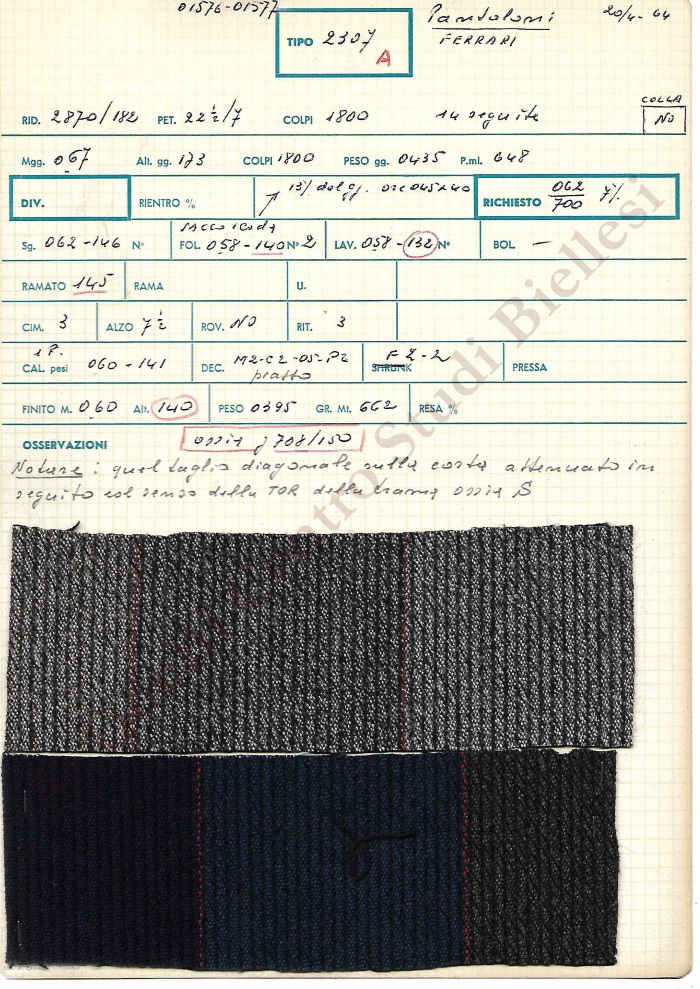 01576-01577
TIPO 2307 A
Pantaloni 20/4-64
FERRARI
COLLA
NO
RID. 2870/182 PET. 22½/7 COLPI 1800 14 seguite
Mgg. 067 Alt. gg. 173 COLPI 1800 PESO gg. 0435 P.ml. 648
DIV. RIENTRO % 13% dal gg. RICHIESTO 062/700 f%
Sg. 062-146 N° FOL. 058-140 N° 2 LAV. 058-132 N° BOL. —
RAMATO 145 RAMA U.
CIM. 3 ALZO 7½ ROV. NO RIT. 3
1 P.
CAL. pesi 060-141 DEC. M2-C2-05-P2 piatto SHRUNK F2-2 PRESSA
FINITO M. 060 Alt. 140 PESO 0395 GR. Mt. 662 RESA %
OSSERVAZIONI ossia g 708/150
Notare: quel taglio diagonale sulla costa attenuato in
seguito col senso della TOR della trama ossia S
Centro Studi Biellesi